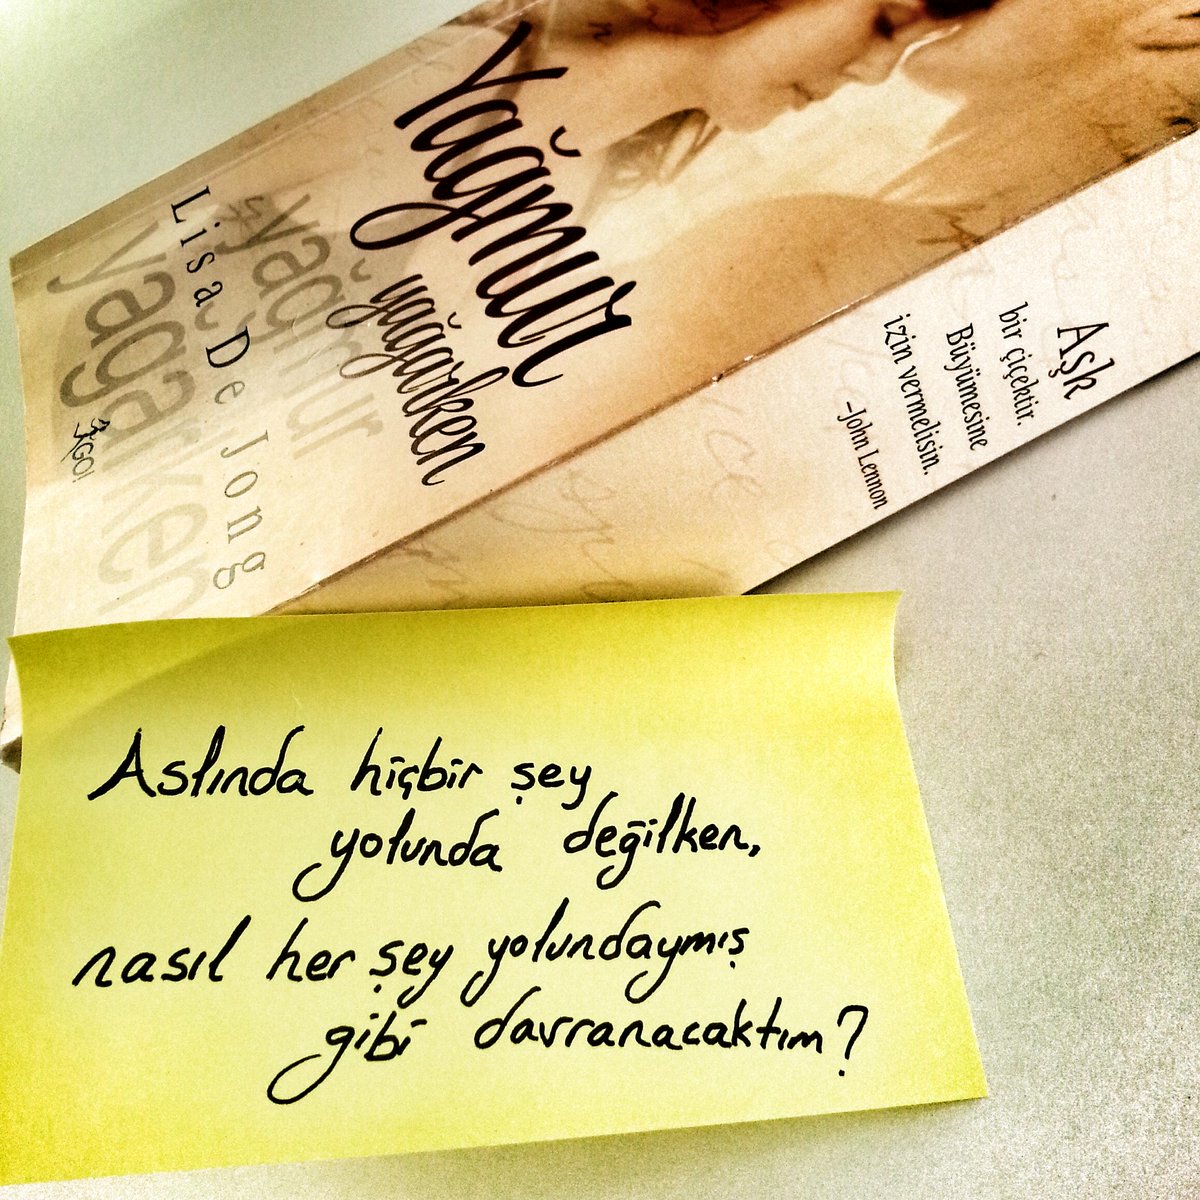 Yağmur
yağarken
yağmur
yağarken
Lisa De Jong
Aşk
bir çiçektir.
Büyümesine
izin vermelisin.
-John Lennon
Aslında hiçbir şey
yolunda değilken,
nasıl her şey yolundaymış
gibi davranacaktım?